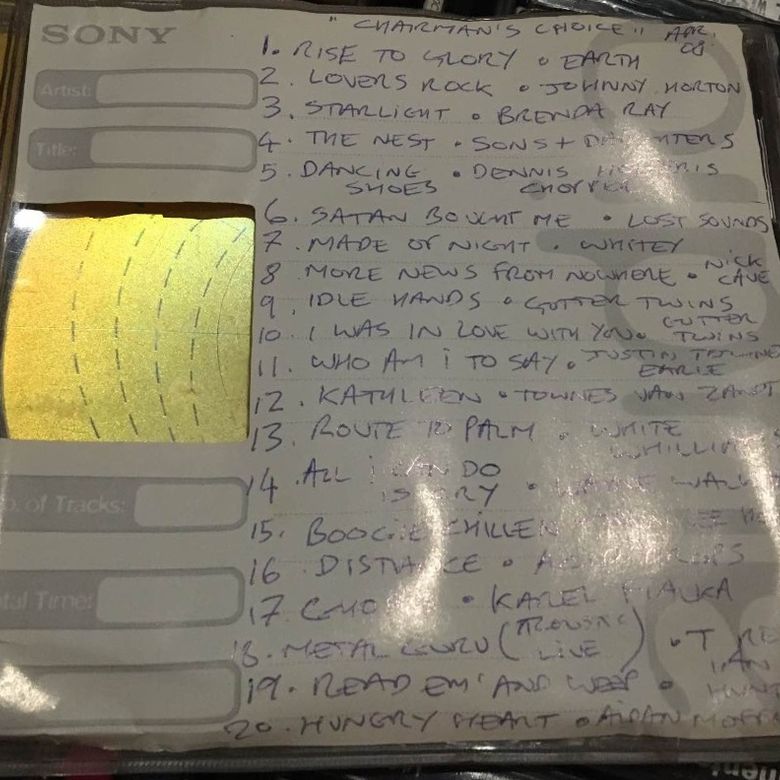 SONY
"CHAIRMAN'S CHOICE" APR. 08
1. RISE TO GLORY • EARTH
Artist:
2. LOVERS ROCK • JOHNNY HORTON
3. STARLIGHT • BRENDA RAY
Title:
4. THE NEST • SONS + DAUGHTERS
5. DANCING SHOES • DENNIS CHOPPER
6. SATAN BOUGHT ME • LOST SOUNDS
7. MADE OF NIGHT • WHITEY
8 MORE NEWS FROM NOWHERE • NICK CAVE
9. IDLE HANDS • GUTTER TWINS
10. I WAS IN LOVE WITH YOU • GUTTER TWINS
11. WHO AM I TO SAY • JUSTIN EARLE
12. KATHLEEN • TOWNES VAN ZANDT
13. ROUTE TO PALM • WHITE
14. ALL I CAN DO IS CRY • WAYNE
of Tracks:
15. BOOGIE CHILLEN
16. DISTANCE •
Time:
17 • KAREL FIALKA
18. METAL GURU ( LIVE ) • T RE
19. READ EM' AND WEEP • IAN HUN
20. HUNGRY HEART • AIDAN MOFF